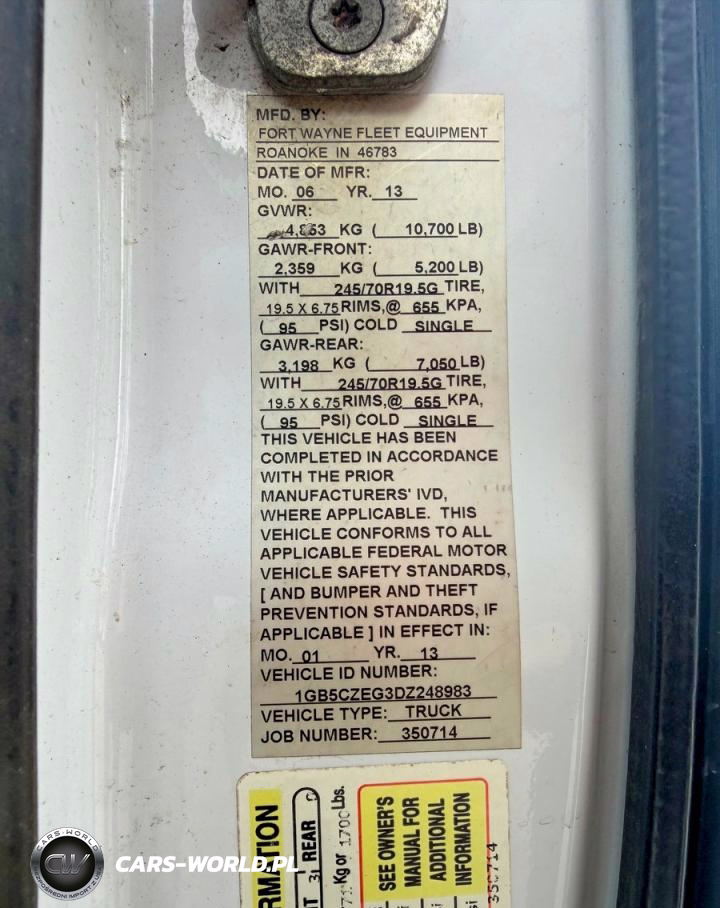 MFD. BY:
FORT WAYNE FLEET EQUIPMENT
ROANOKE IN 46783
DATE OF MFR:
MO. 06 YR. 13
GVWR:
4,853 KG ( 10,700 LB)
GAWR-FRONT:
2,359 KG ( 5,200 LB)
WITH 245/70R19.5G TIRE,
19.5 X 6.75 RIMS,@ 655 KPA,
( 95 PSI) COLD SINGLE
GAWR-REAR:
3,198 KG ( 7,050 LB)
WITH 245/70R19.5G TIRE,
19.5 X 6.75 RIMS,@ 655 KPA,
( 95 PSI) COLD SINGLE
THIS VEHICLE HAS BEEN
COMPLETED IN ACCORDANCE
WITH THE PRIOR
MANUFACTURERS' IVD,
WHERE APPLICABLE. THIS
VEHICLE CONFORMS TO ALL
APPLICABLE FEDERAL MOTOR
VEHICLE SAFETY STANDARDS,
[ AND BUMPER AND THEFT
PREVENTION STANDARDS, IF
APPLICABLE ] IN EFFECT IN:
MO. 01 YR. 13
VEHICLE ID NUMBER:
1GB5CZEG3DZ248983
VEHICLE TYPE: TRUCK
JOB NUMBER: 350714
REAR
Kg or 1700 Lbs.
SEE OWNER'S
MANUAL FOR
ADDITIONAL
INFORMATION
350714
CARS-WORLD
CW
CARS-WORLD.PL